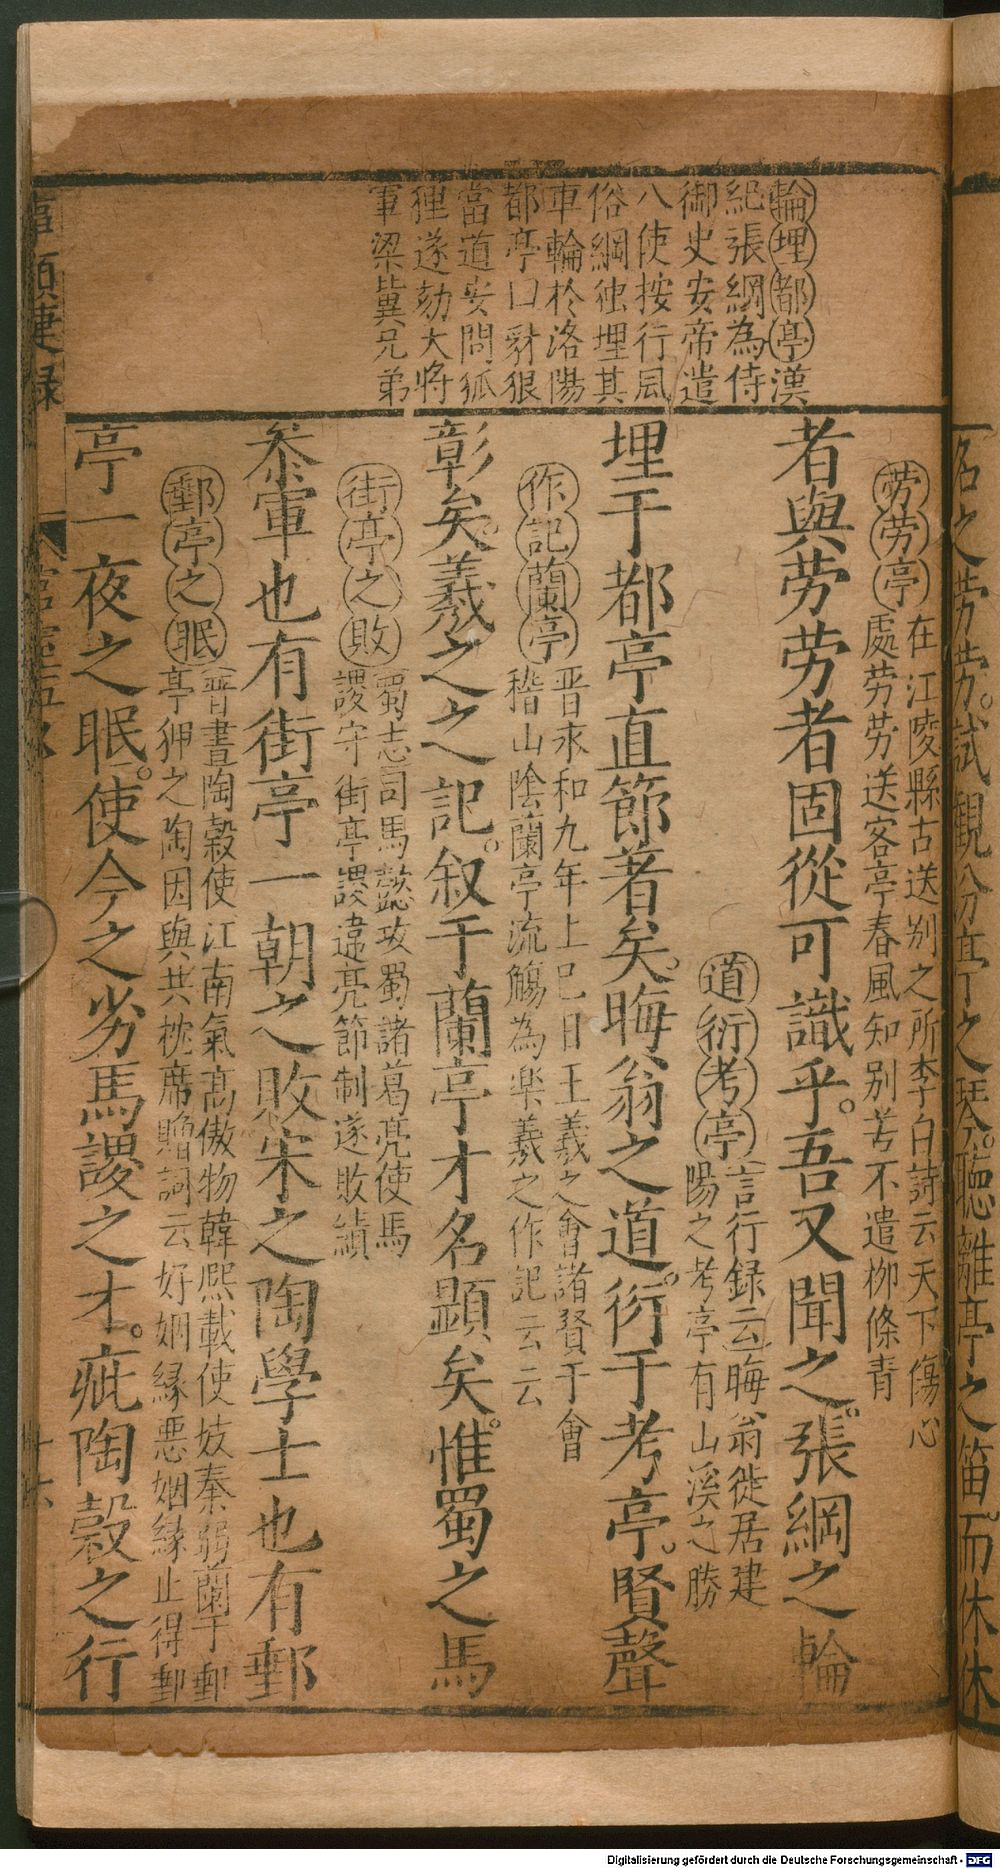 輪埋都亭漢
紀張綱為侍
御史安帝遣
八使按行風
俗綱独埋其
車輪於洛陽
都亭曰豺狼
當道安問狐
狸遂劾大将
軍梁冀兄弟
勞勞亭在江陵縣古送别之所李白詩云天下傷心
處劳劳送客亭春風知别苦不遣栁條青
者與劳劳者固從可識乎吾又聞之張綱之輪
道衍考亭言行録云晦翁徙居建
陽之考亭有山溪之勝
埋于都亭直節著矣晦翁之道衍于考亭賢聲
作記蘭亭晋永和九年上巳日王羲之會諸賢于會
稽山陰蘭亭流觴為楽羲之作記云云
彰矣羲之之記叙于蘭亭才名顕矣惟蜀之馬
街亭之敗蜀志司馬懿攻蜀諸葛亮使馬
謖守街亭謖違亮節制遂敗績
叅軍也有街亭一朝之敗宋之陶學士也有郵
郵亭之眠晋書陶穀使江南氣高傲物韓熈載使妓秦弱蘭于郵
亭狎之陶因與共枕席贈詞云好姻縁悪姻縁止得郵
亭一夜之眠使今之劣馬謖之才疵陶穀之行
名之劳劳試觀分亭之琴聴離亭之笛而休休